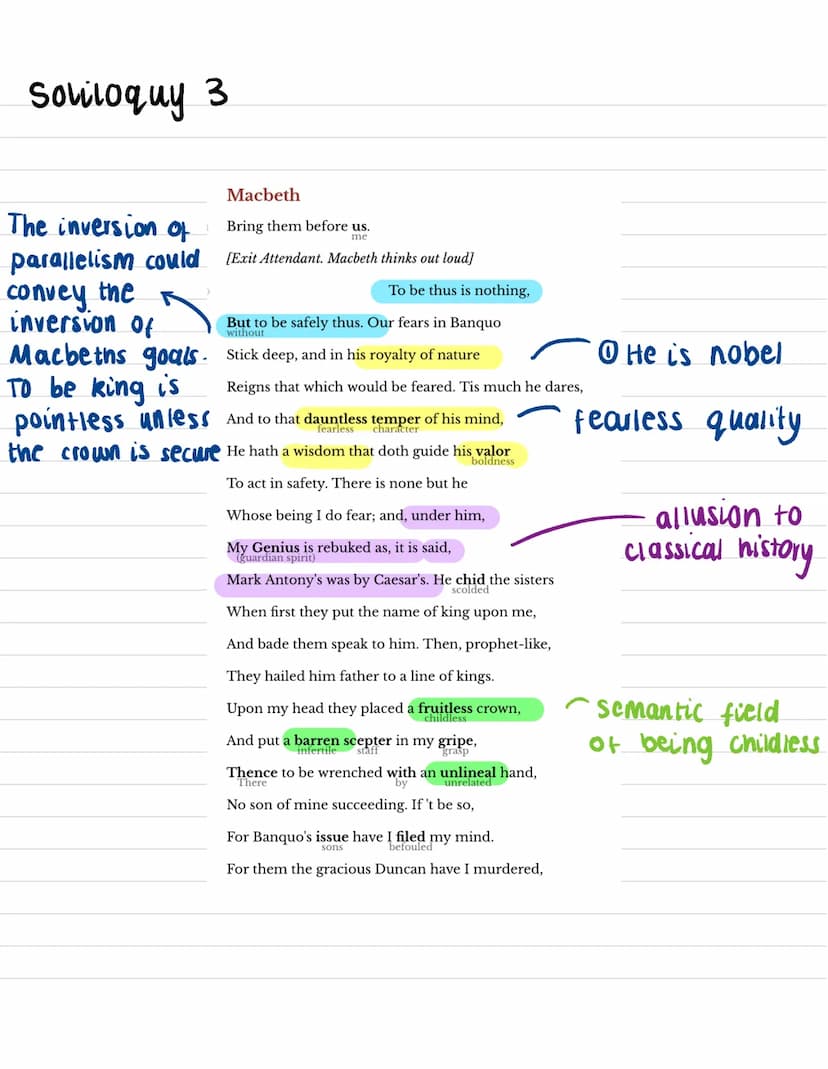 Soliloquy 3
Macbeth
Bring them before us.
me
[Exit Attendant. Macbeth thinks out loud]
To be thus is nothing,
But to be safely thus. Our fears in Banquo
without
Stick deep, and in his royalty of nature
Reigns that which would be feared. Tis much he dares,
And to that dauntless temper of his mind,
fearless character
He hath a wisdom that doth guide his valor
boldness
To act in safety. There is none but he
Whose being I do fear; and, under him,
My Genius is rebuked as, it is said,
(guardian spirit)
Mark Antony's was by Caesar's. He chid the sisters
scolded
When first they put the name of king upon me,
And bade them speak to him. Then, prophet-like,
They hailed him father to a line of kings.
Upon my head they placed a fruitless crown,
childless
And put a barren scepter in my gripe,
infertile staff grasp
Thence to be wrenched with an unlineal hand,
There by unrelated
No son of mine succeeding. If 't be so,
For Banquo's issue have I filed my mind.
sons befouled
For them the gracious Duncan have I murdered,
The inversion of
parallelism could
convey the
inversion of
Macbeths goals.
To be king is
pointless unless
the crown is secure
① He is nobel
fearless quality
allusion to
classical history
semantic field
of being childless